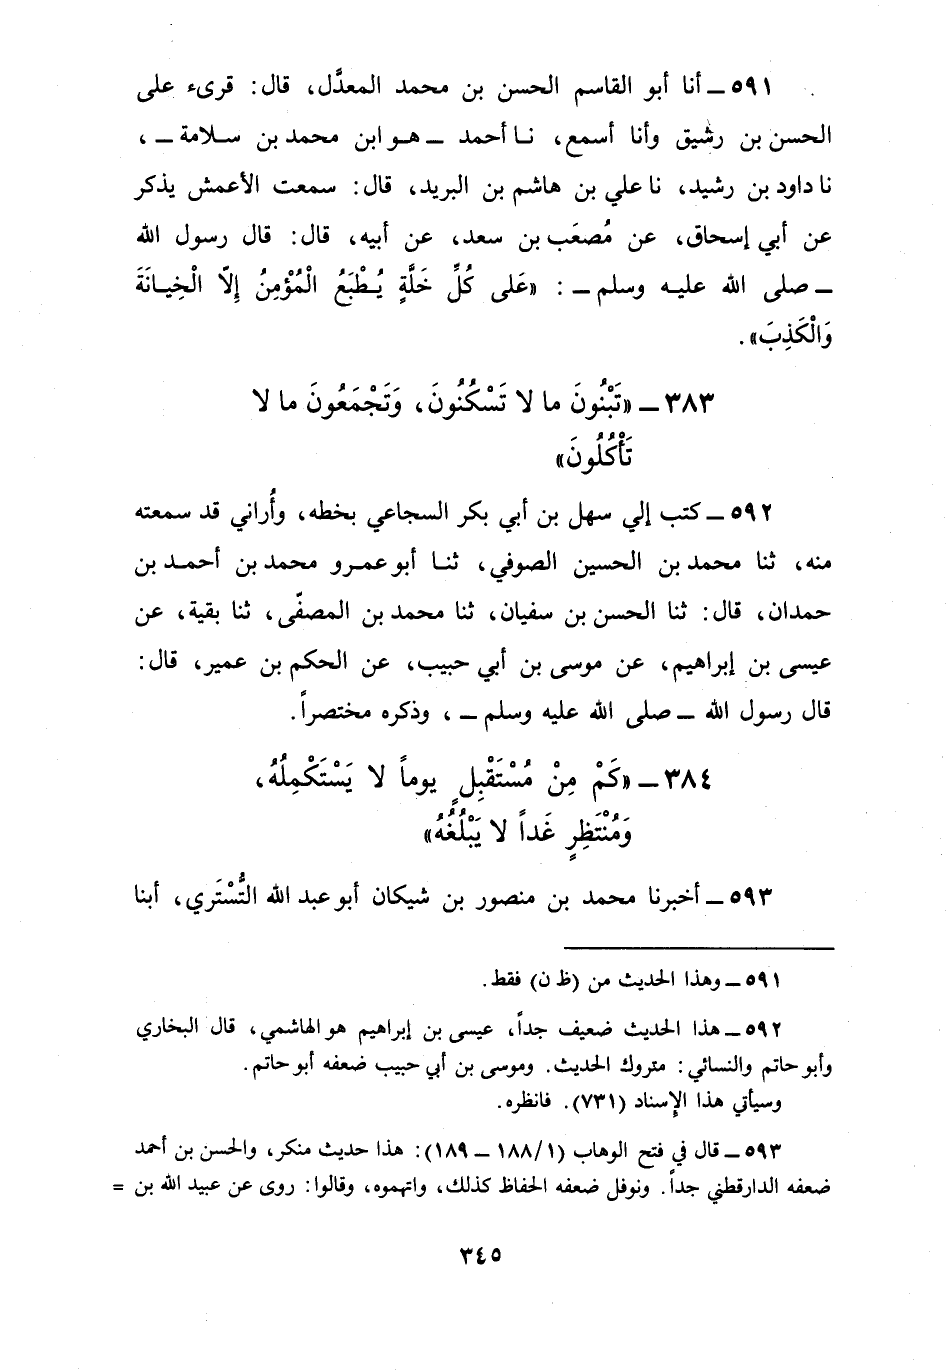 ٥٩١ ــ أنا أبو القاسم الحسن بن محمد المعدَّل، قال: قرىء على
الحسن بن رشيق وأنا أسمع، نا أحمد ــ هو ابن محمد بن سلامة ــ،
نا داود بن رشيد، نا علي بن هاشم بن البريد، قال: سمعت الأعمش يذكر
عن أبي إسحاق، عن مُصعَب بن سعد، عن أبيه، قال: قال رسول الله
ــ صلى الله عليه وسلم ــ: «عَلى كُلِّ خَلَّةٍ يُطْبَعُ الْمُؤْمِنُ إِلّا الْخِيانَةَ
وَالْكَذِبَ».
٣٨٣ ــ «تَبْنُونَ ما لا تَسْكُنُونَ، وَتَجْمَعُونَ ما لا
تَأْكُلُونَ»
٥٩٢ ــ كتب إلي سهل بن أبي بكر السجاعي بخطه، وأُراني قد سمعته
منه، ثنا محمد بن الحسين الصوفي، ثنا أبو عمرو محمد بن أحمد بن
حمدان، قال: ثنا الحسن بن سفيان، ثنا محمد بن المصفّى، ثنا بقية، عن
عيسى بن إبراهيم، عن موسى بن أبي حبيب، عن الحكم بن عمير، قال:
قال رسول الله ــ صلى الله عليه وسلم ــ، وذكره مختصراً.
٣٨٤ ــ «كَمْ مِنْ مُسْتَقْبِلٍ يوماً لا يَسْتَكْمِلُهُ،
وَمُنْتَظِرٍ غَداً لا يَبْلُغُهُ»
٥٩٣ ــ أخبرنا محمد بن منصور بن شيكان أبو عبد الله التُّسْتَري، أبنا
٥٩١ ــ وهذا الحديث من (ظ ن) فقط.
٥٩٢ ــ هذا الحديث ضعيف جداً، عيسى بن إبراهيم هو الهاشمي، قال البخاري
وأبو حاتم والنسائي: متروك الحديث. وموسى بن أبي حبيب ضعفه أبو حاتم.
وسيأتي هذا الإسناد (٧٣١). فانظره.
٥٩٣ ــ قال في فتح الوهاب (١/ ١٨٨ ــ ١٨٩): هذا حديث منكر، والحسن بن أحمد
ضعفه الدارقطني جداً. ونوفل ضعفه الحفاظ كذلك، واتهموه، وقالوا: روى عن عبيد الله بن =
٣٤٥